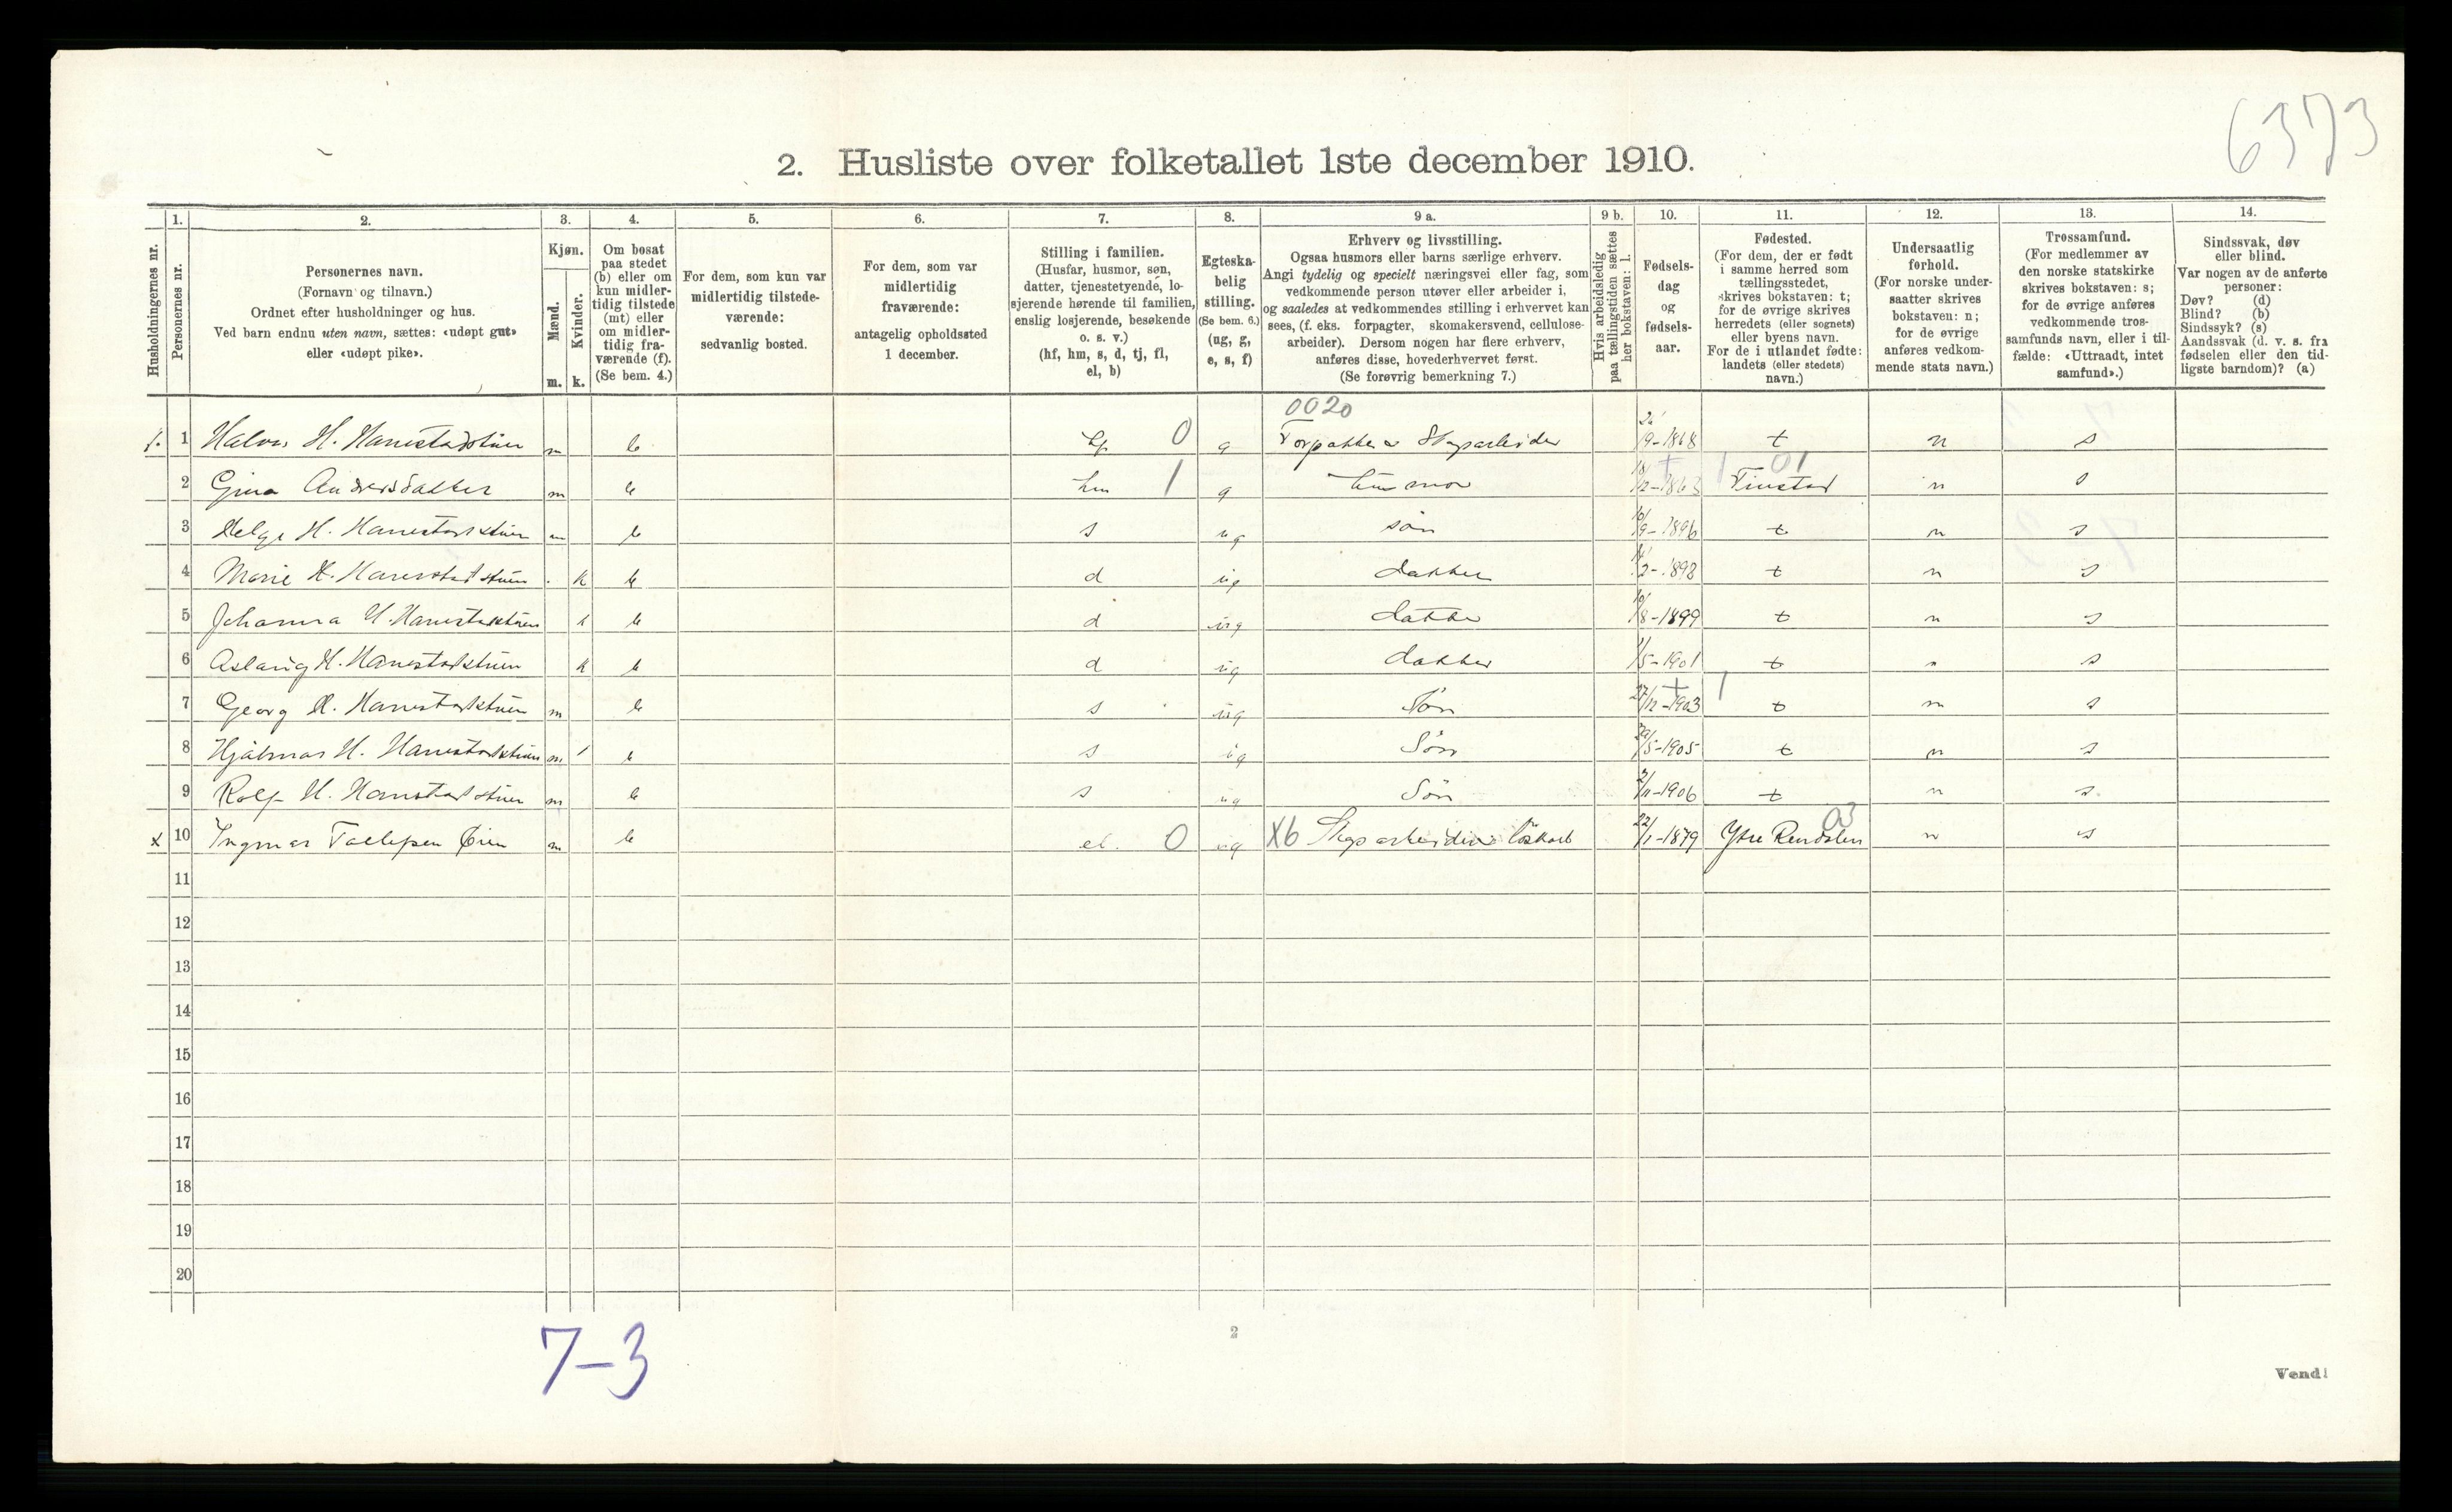 6373
2. Husliste over folketallet 1ste december 1910.
Husholdningernes nr.
1.
Personernes nr.
2.
Personernes navn.
(Fornavn og tilnavn.)
Ordnet efter husholdninger og hus.
Ved barn endnu uten navn, sættes: «udøpt gut»
eller «udøpt pike».
3.
Kjøn.
Mænd.
Kvinder.
m. k.
4.
Om bosat
paa stedet
(b) eller om
kun midler-
tidig tilstede
(mt) eller
om midler-
tidig fra-
værende (f).
(Se bem. 4.)
5.
For dem, som kun var
midlertidig tilstede-
værende:
sedvanlig bosted.
6.
For dem, som var
midlertidig
fraværende:
antagelig opholdssted
1 december.
7.
Stilling i familien.
(Husfar, husmor, søn,
datter, tjenestetyende, lo-
sjerende hørende til familien,
enslig losjerende, besøkende
o. s. v.)
(hf, hm, s, d, tj, fl,
el, b)
8.
Egteska-
belig
stilling.
(Se bem. 6.)
(ug, g,
e, s, f)
9 a.
Erhverv og livsstilling.
Ogsaa husmors eller barns særlige erhverv.
Angi tydelig og specielt næringsvei eller fag, som
vedkommende person utøver eller arbeider i,
og saaledes at vedkommendes stilling i erhvervet kan
sees, (f. eks. forpagter, skomakersvend, cellulose-
arbeider). Dersom nogen har flere erhverv,
anføres disse, hovederhvervet først.
(Se forøvrig bemerkning 7.)
9 b.
Hvis arbeidsledig
paa tællingstiden sættes
her bokstaven: l.
10.
Fødsels-
dag
og
fødsels-
aar.
11.
Fødested.
(For dem, der er født
i samme herred som
tællingsstedet,
skrives bokstaven: t;
for de øvrige skrives
herredets (eller sognets)
eller byens navn.
For de i utlandet fødte:
landets (eller stedets)
navn.)
12.
Undersaatlig
forhold.
(For norske under-
saatter skrives
bokstaven: n;
for de øvrige
anføres vedkom-
mende stats navn.)
13.
Trossamfund.
(For medlemmer av
den norske statskirke
skrives bokstaven: s;
for de øvrige anføres
vedkommende tros-
samfunds navn, eller i til-
fælde: «Uttraadt, intet
samfund».)
14.
Sindssvak, døv
eller blind.
Var nogen av de anførte
personer:
Døv? (d)
Blind? (b)
Sindssyk? (s)
Aandssvak (d. v. s. fra
fødselen eller den tid-
ligste barndom)? (a)
0020
1. 1 Halvor H. Hanestadstuen m b hf 0 g Forpakter Skogarbeider 9-1868 t n s
2 Gina Andersdatter m b hm 1 g husmor 12-1863 01 n s
3 Helge H. Hanestadstuen m b s ug søn 10/9-1896 t n s
4 Marie H. Hanestadstuen k b d ug datter 2-1898 t n s
5 Johanna H. Hanestadstuen k b d ug datter 10/8-1899 t n s
6 Aslaug H. Hanestadstuen k b d ug datter /5-1901 t n s
7 Georg H. Hanestadstuen m b s ug Søn 27/12-1903 t n s
8 Hjalmar H. Hanestadstuen m b s ug Søn /5-1905 t n s
9 Rolf H. Hanestadstuen m b s ug Søn /11-1906 t n s
x 10 Ingmar m b el. 0 ug X6 Skogsarbeider 22/1-1879 Ytre Rendalen 03 n s
11
12
13
14
15
16
17
18
19
20
7-3
2
Vend!